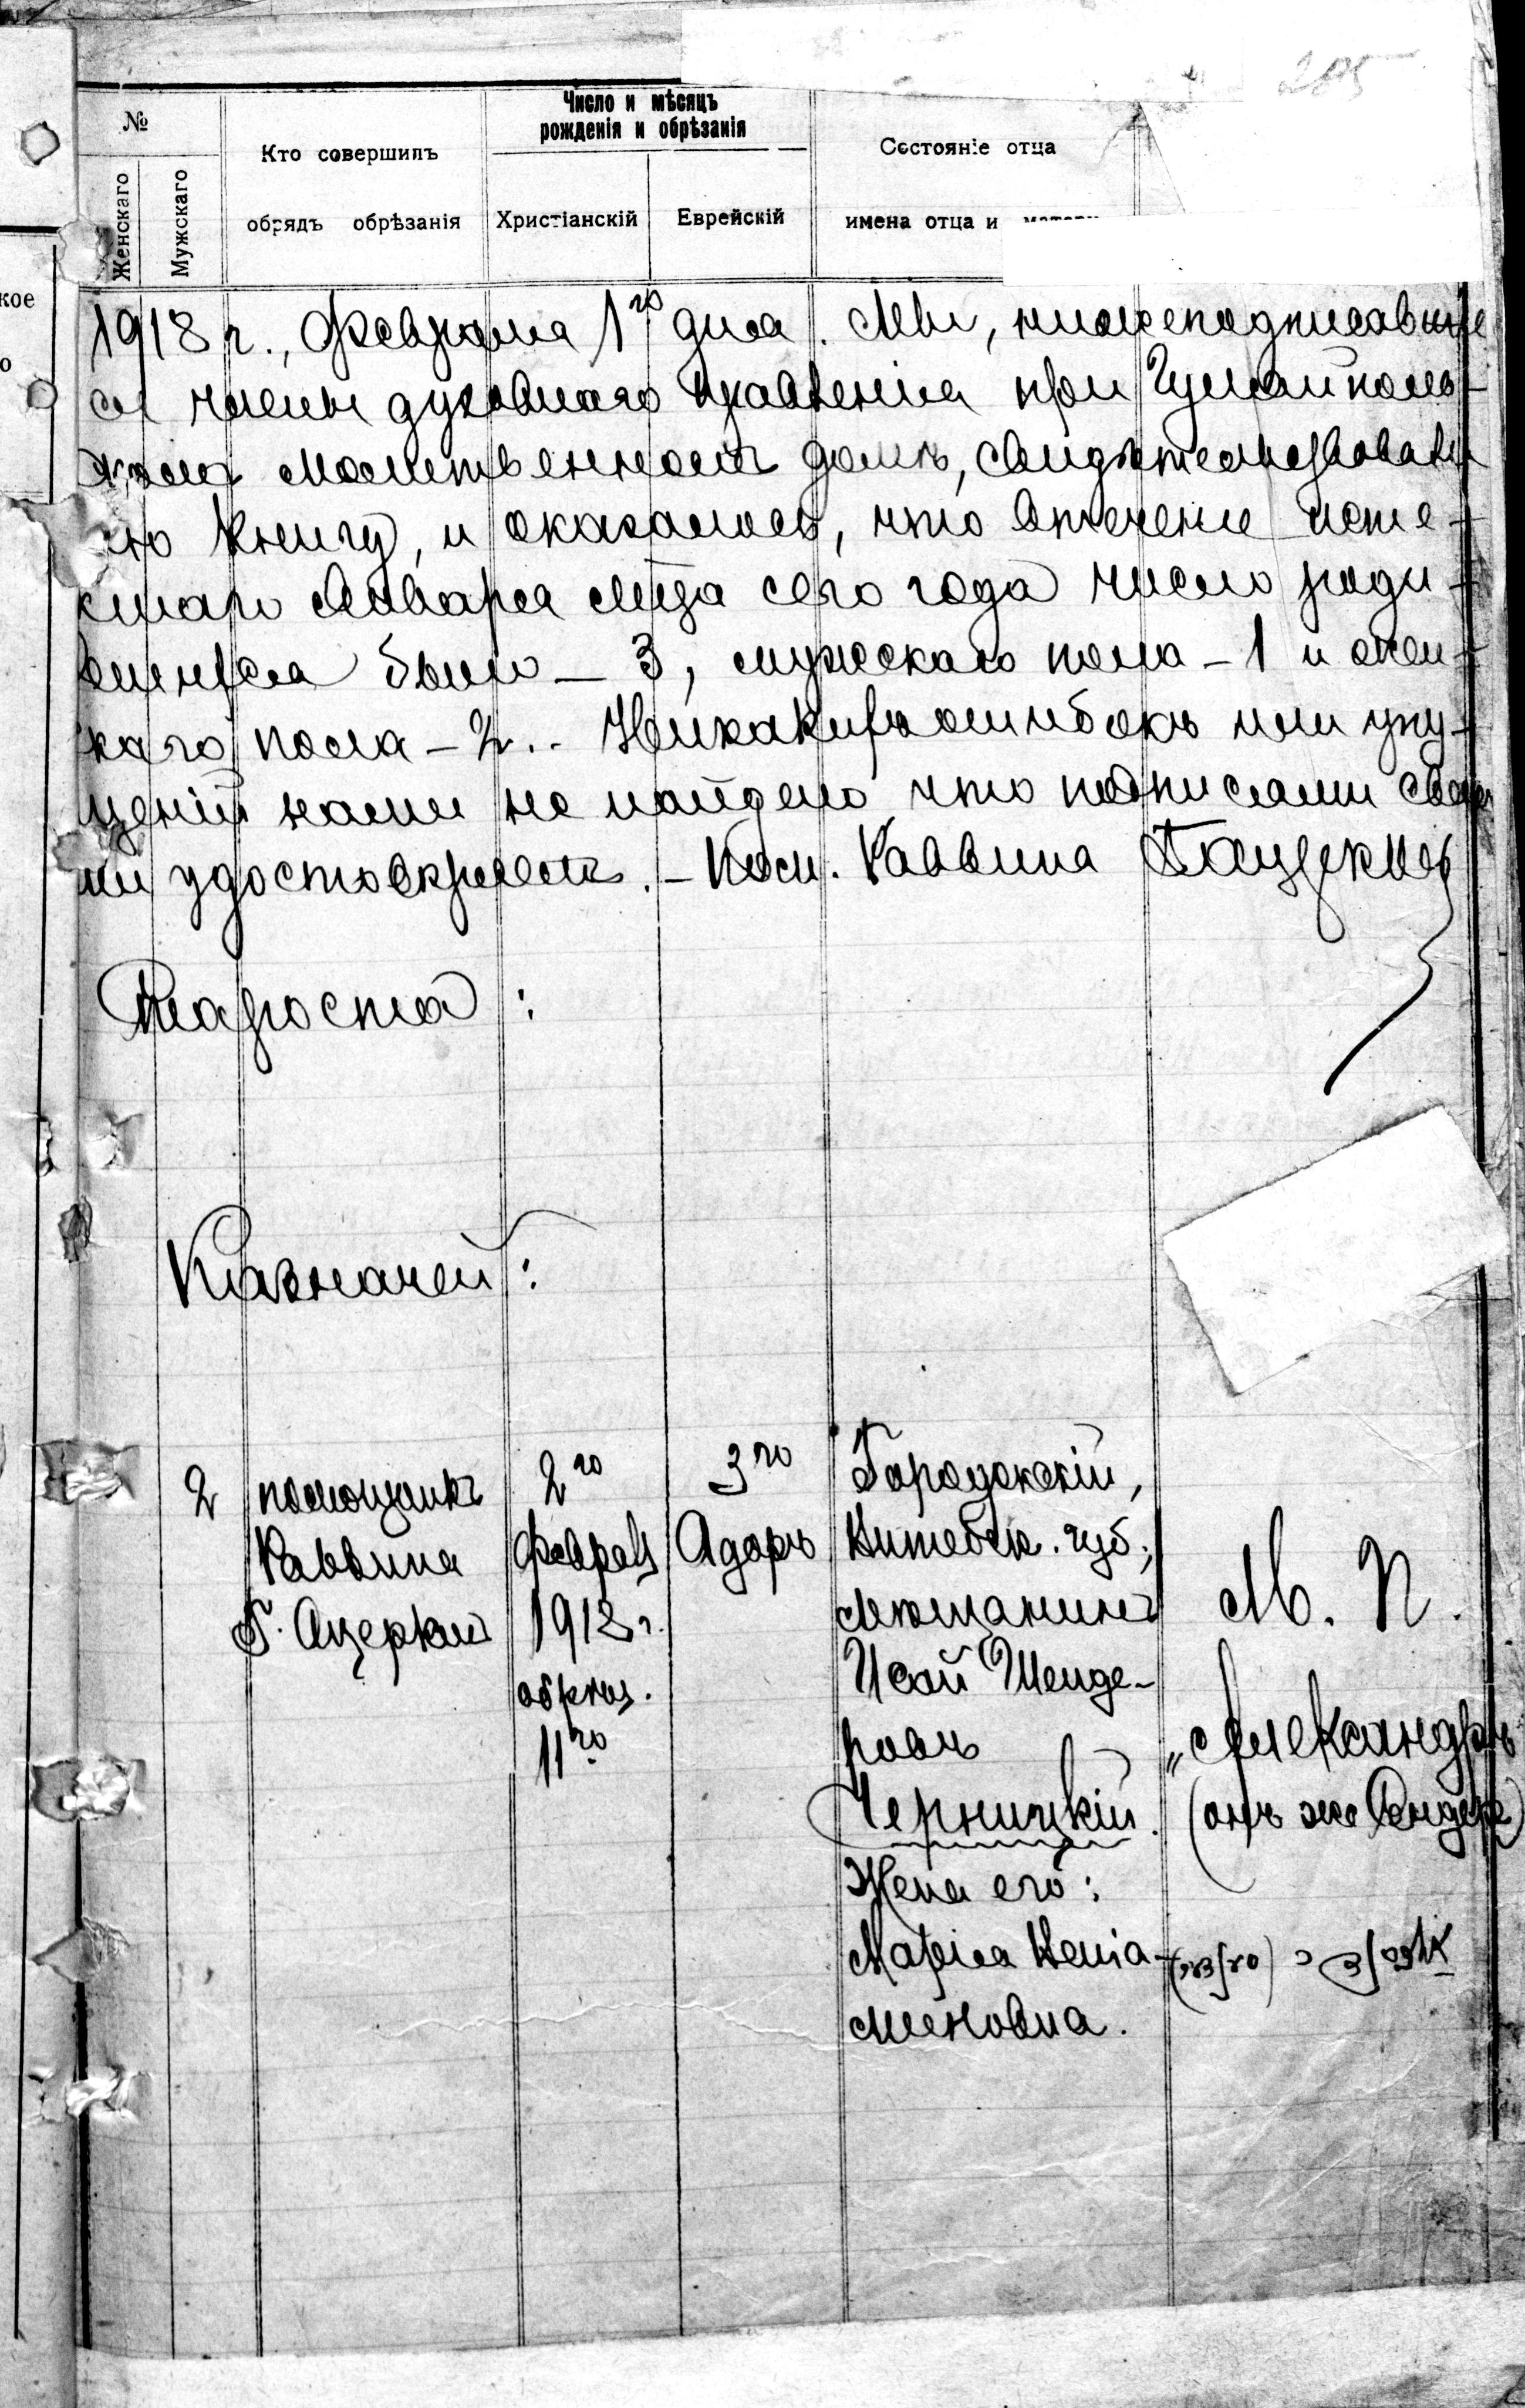 205
№
Женскаго
Мужскаго
Кто совершилъ
обрядъ обрѣзанія
Число и мѣсяцъ
рожденія и обрѣзанія
Христіанскій
Еврейскій
Состояніе отца
имена отца и
кое
о
1918 г., Февраля 1го дня. Мы, нижеподписавшіе
ся члены духовнаго правленія при Гуляйполь-
скомъ Молитвенномъ домѣ, свидѣтельствовали
сію книгу, и оказалось, что втеченіе исте-
кшаго Января мца сего года число роди-
вшихся было – 3, мужскаго пола – 1 и жен-
скаго пола – 2. – Никакихъ ошибокъ или упу-
щеній нами не найдено что подписями свои
ми удостовѣряемъ. – Пом. Раввина
Староста :
Казначей :
2
помощникъ
Раввина
Г. Ацеркинъ
2го
Февраля
1918 г.
обрѣз.
11го
3го
Адаръ
Городокскій,
Витебск. губ.,
мѣщанинъ
Исай Шенде-
ровъ
Черницкій.
Жена его:
Марія Веніа-
миновна.
М. П.
„Александръ
(онъ же Сендеръ)